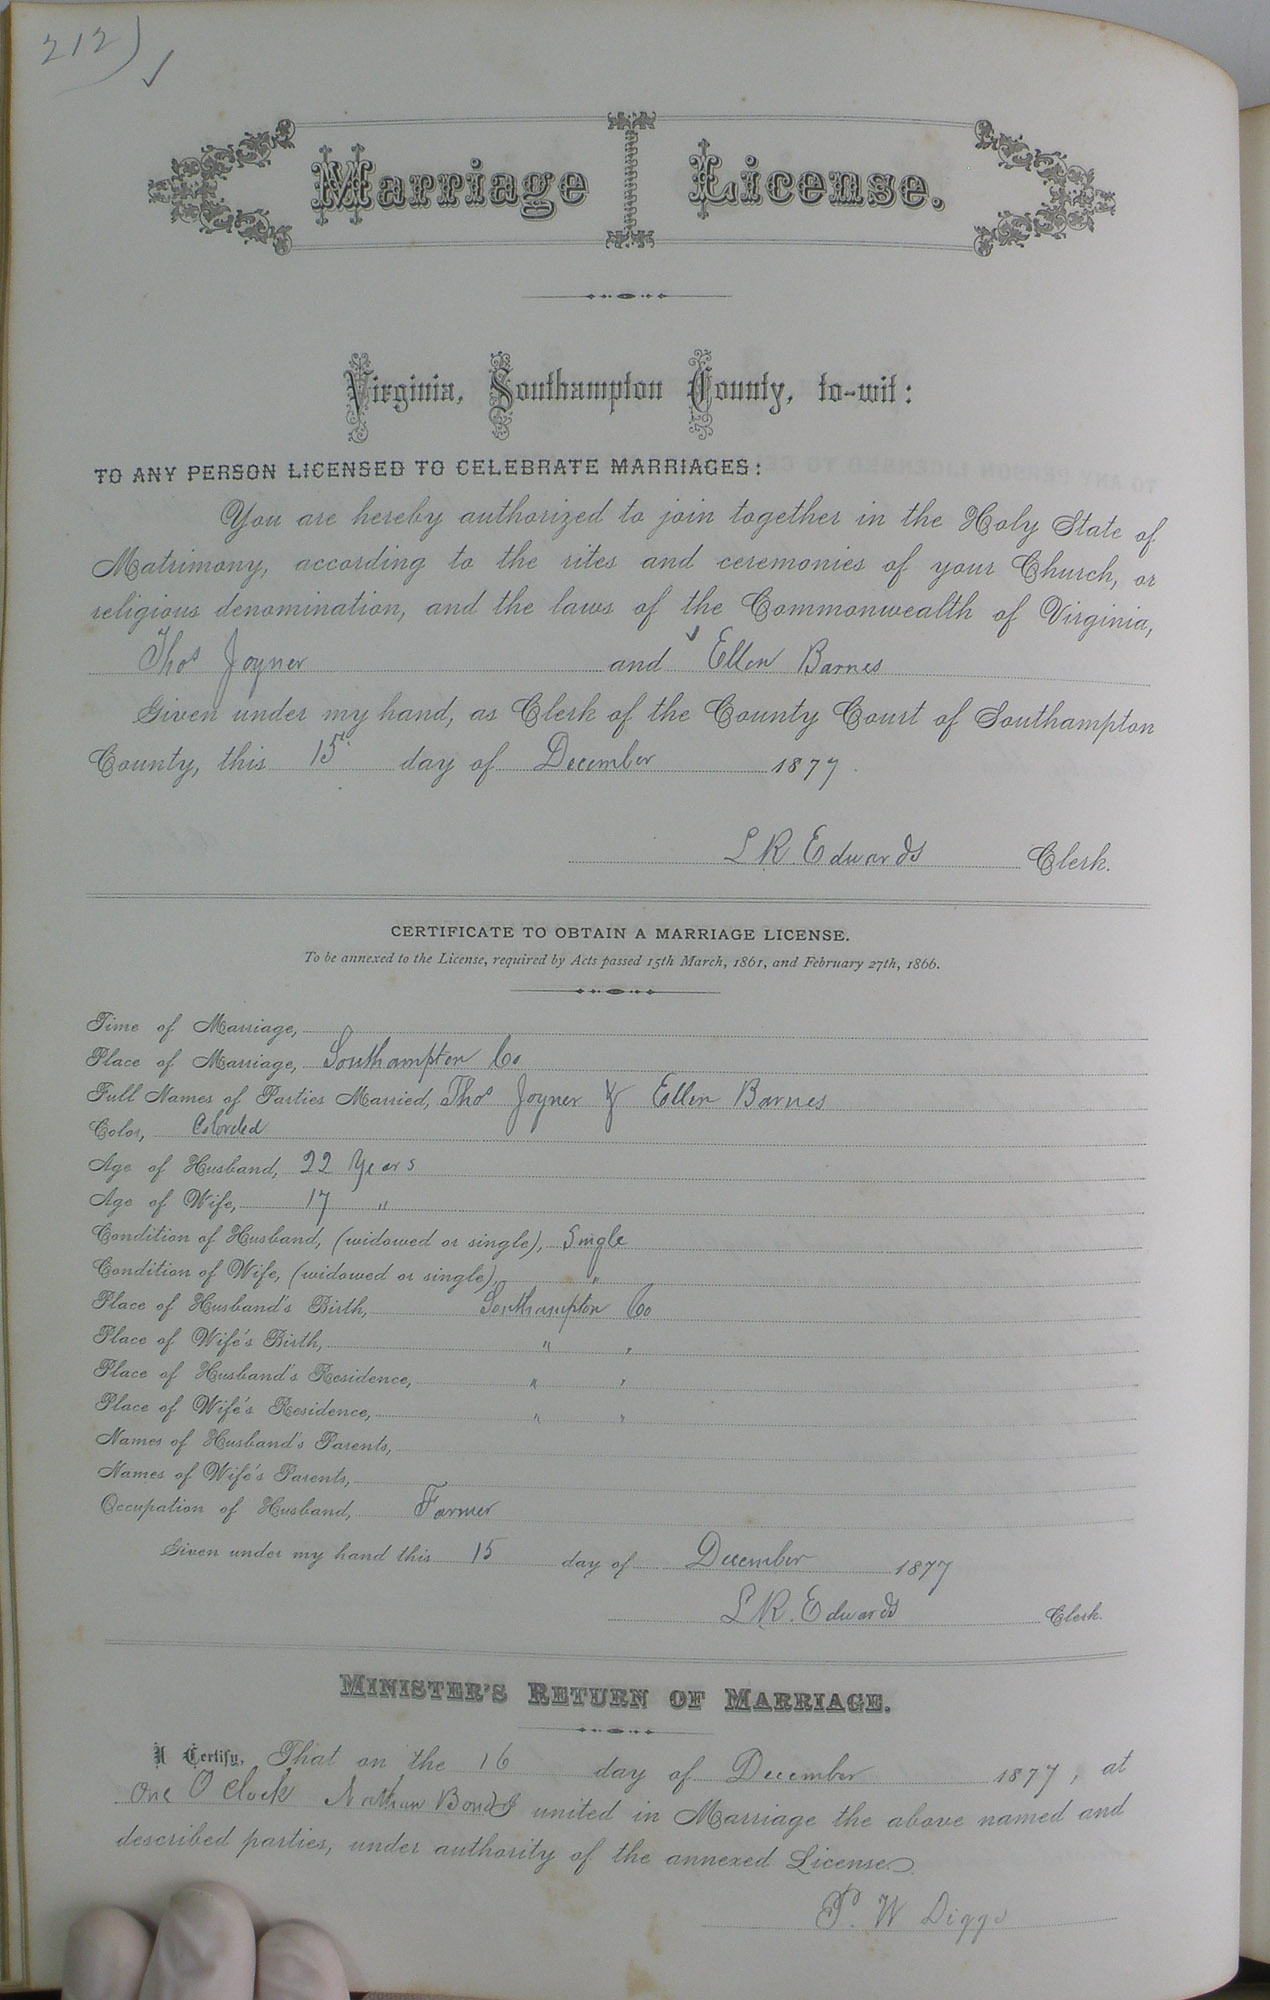 212) ✓
Marriage License.
Virginia, Southampton County, to-wit:
TO ANY PERSON LICENSED TO CELEBRATE MARRIAGES:
You are hereby authorized to join together in the Holy State of
Matrimony, according to the rites and ceremonies of your Church, or
religious denomination, and the laws of the Commonwealth of Virginia,
Thos Joyner and ✓ Ellen Barnes
Given under my hand, as Clerk of the County Court of Southampton
County, this 15th day of December 1877.
L R. Edwards Clerk.
CERTIFICATE TO OBTAIN A MARRIAGE LICENSE.
To be annexed to the License, required by Acts passed 15th March, 1861, and February 27th, 1866.
Time of Marriage,
Place of Marriage, Southampton Co
Full Names of Parties Married, Thos Joyner & Ellen Barnes
Color, Colored
Age of Husband, 22 Years
Age of Wife, 17 "
Condition of Husband, (widowed or single), Single
Condition of Wife, (widowed or single), "
Place of Husband's Birth, Southampton Co
Place of Wife's Birth, " "
Place of Husband's Residence, " "
Place of Wife's Residence, " "
Names of Husband's Parents,
Names of Wife's Parents,
Occupation of Husband, Farmer
Given under my hand this 15 day of December 1877
L R. Edwards Clerk.
MINISTER'S RETURN OF MARRIAGE.
I Certify, That on the 16 day of December 1877, at
One O Clock Nathan I united in Marriage the above named and
described parties, under authority of the annexed License.
P. W Diggs